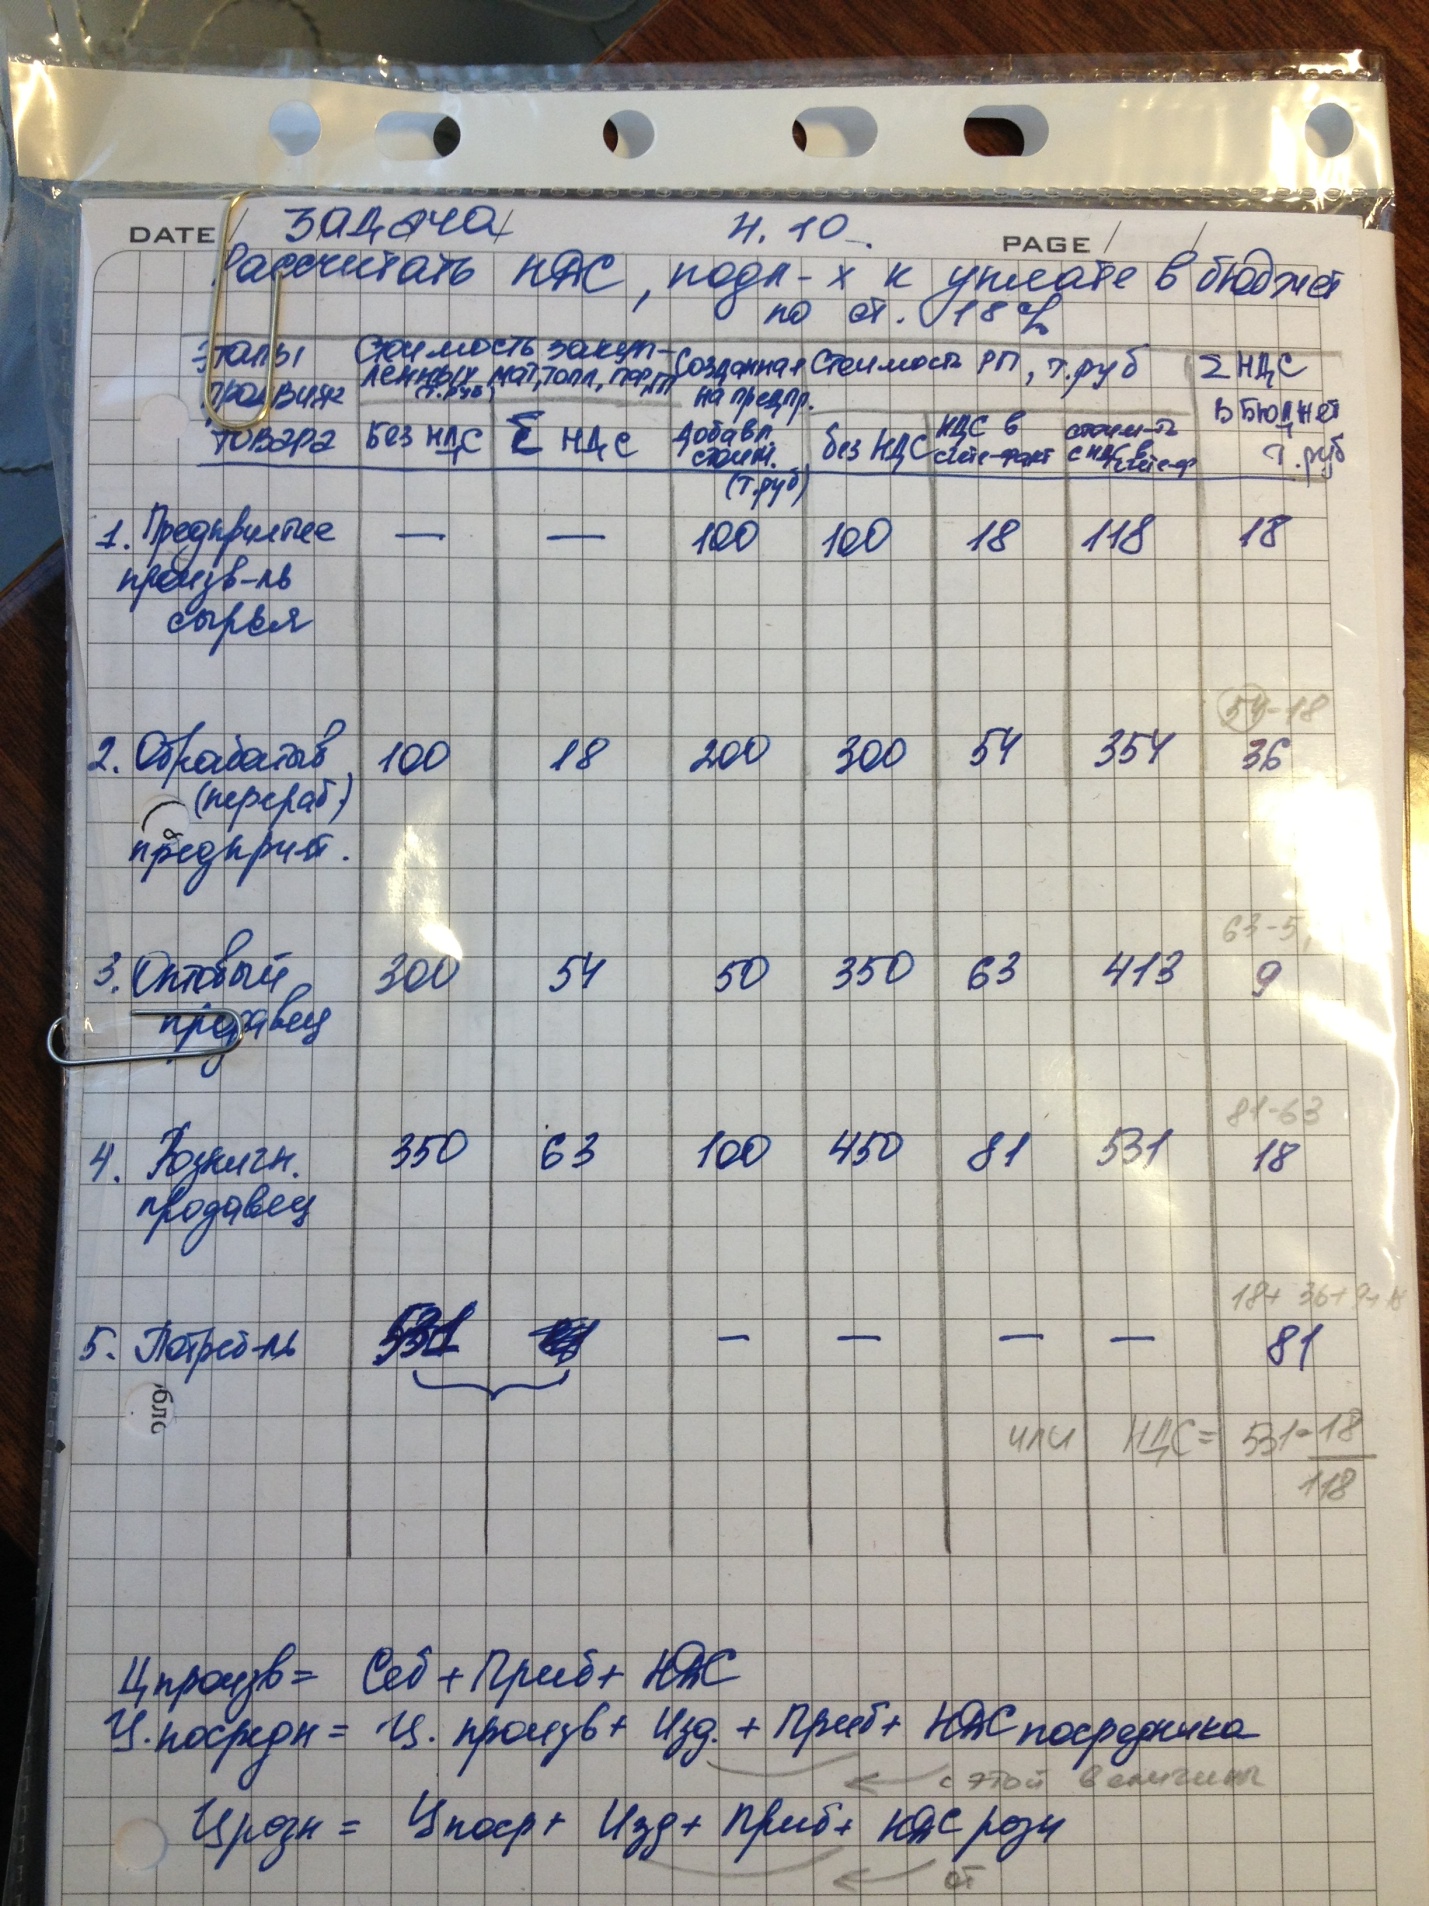 DATE / ЗАДАЧА / 4.10. PAGE / /
Рассчитать НДС, подл-х к уплате в бюджет
по ст. 18%
Этапы Стоимость закуп- Созданная Стоимость РП, т.руб Σ НДС
ленных мат, топл, на предпр. в бюджет
(т.руб)
товара Без НДС Σ НДС добавл. без НДС НДС в стоим-ть т.руб
стоим. счете-факт с НДС в счете-ф
(т.руб)
1. Предприятие — — 100 100 18 118 18
произв-ль
сырья
54-18
2. Обрабатыв 100 18 200 300 54 354 36
(перераб)
предприят.
63-5
3. Оптовый 300 54 50 350 63 413 9
продавец
81-63
4. Розничн. 350 63 100 450 81 531 18
продавец
18+36+9+18
5. Потреб-ль 531 — — — — 81
или НДС = 531·18
118
Ц произв = Себ + Приб + НДС
Ц.посредн = Ц. произв + Изд. + Приб + НДС посредника
с этой величины
Ц розн = Ц поср + Изд + Приб + НДС розн
от